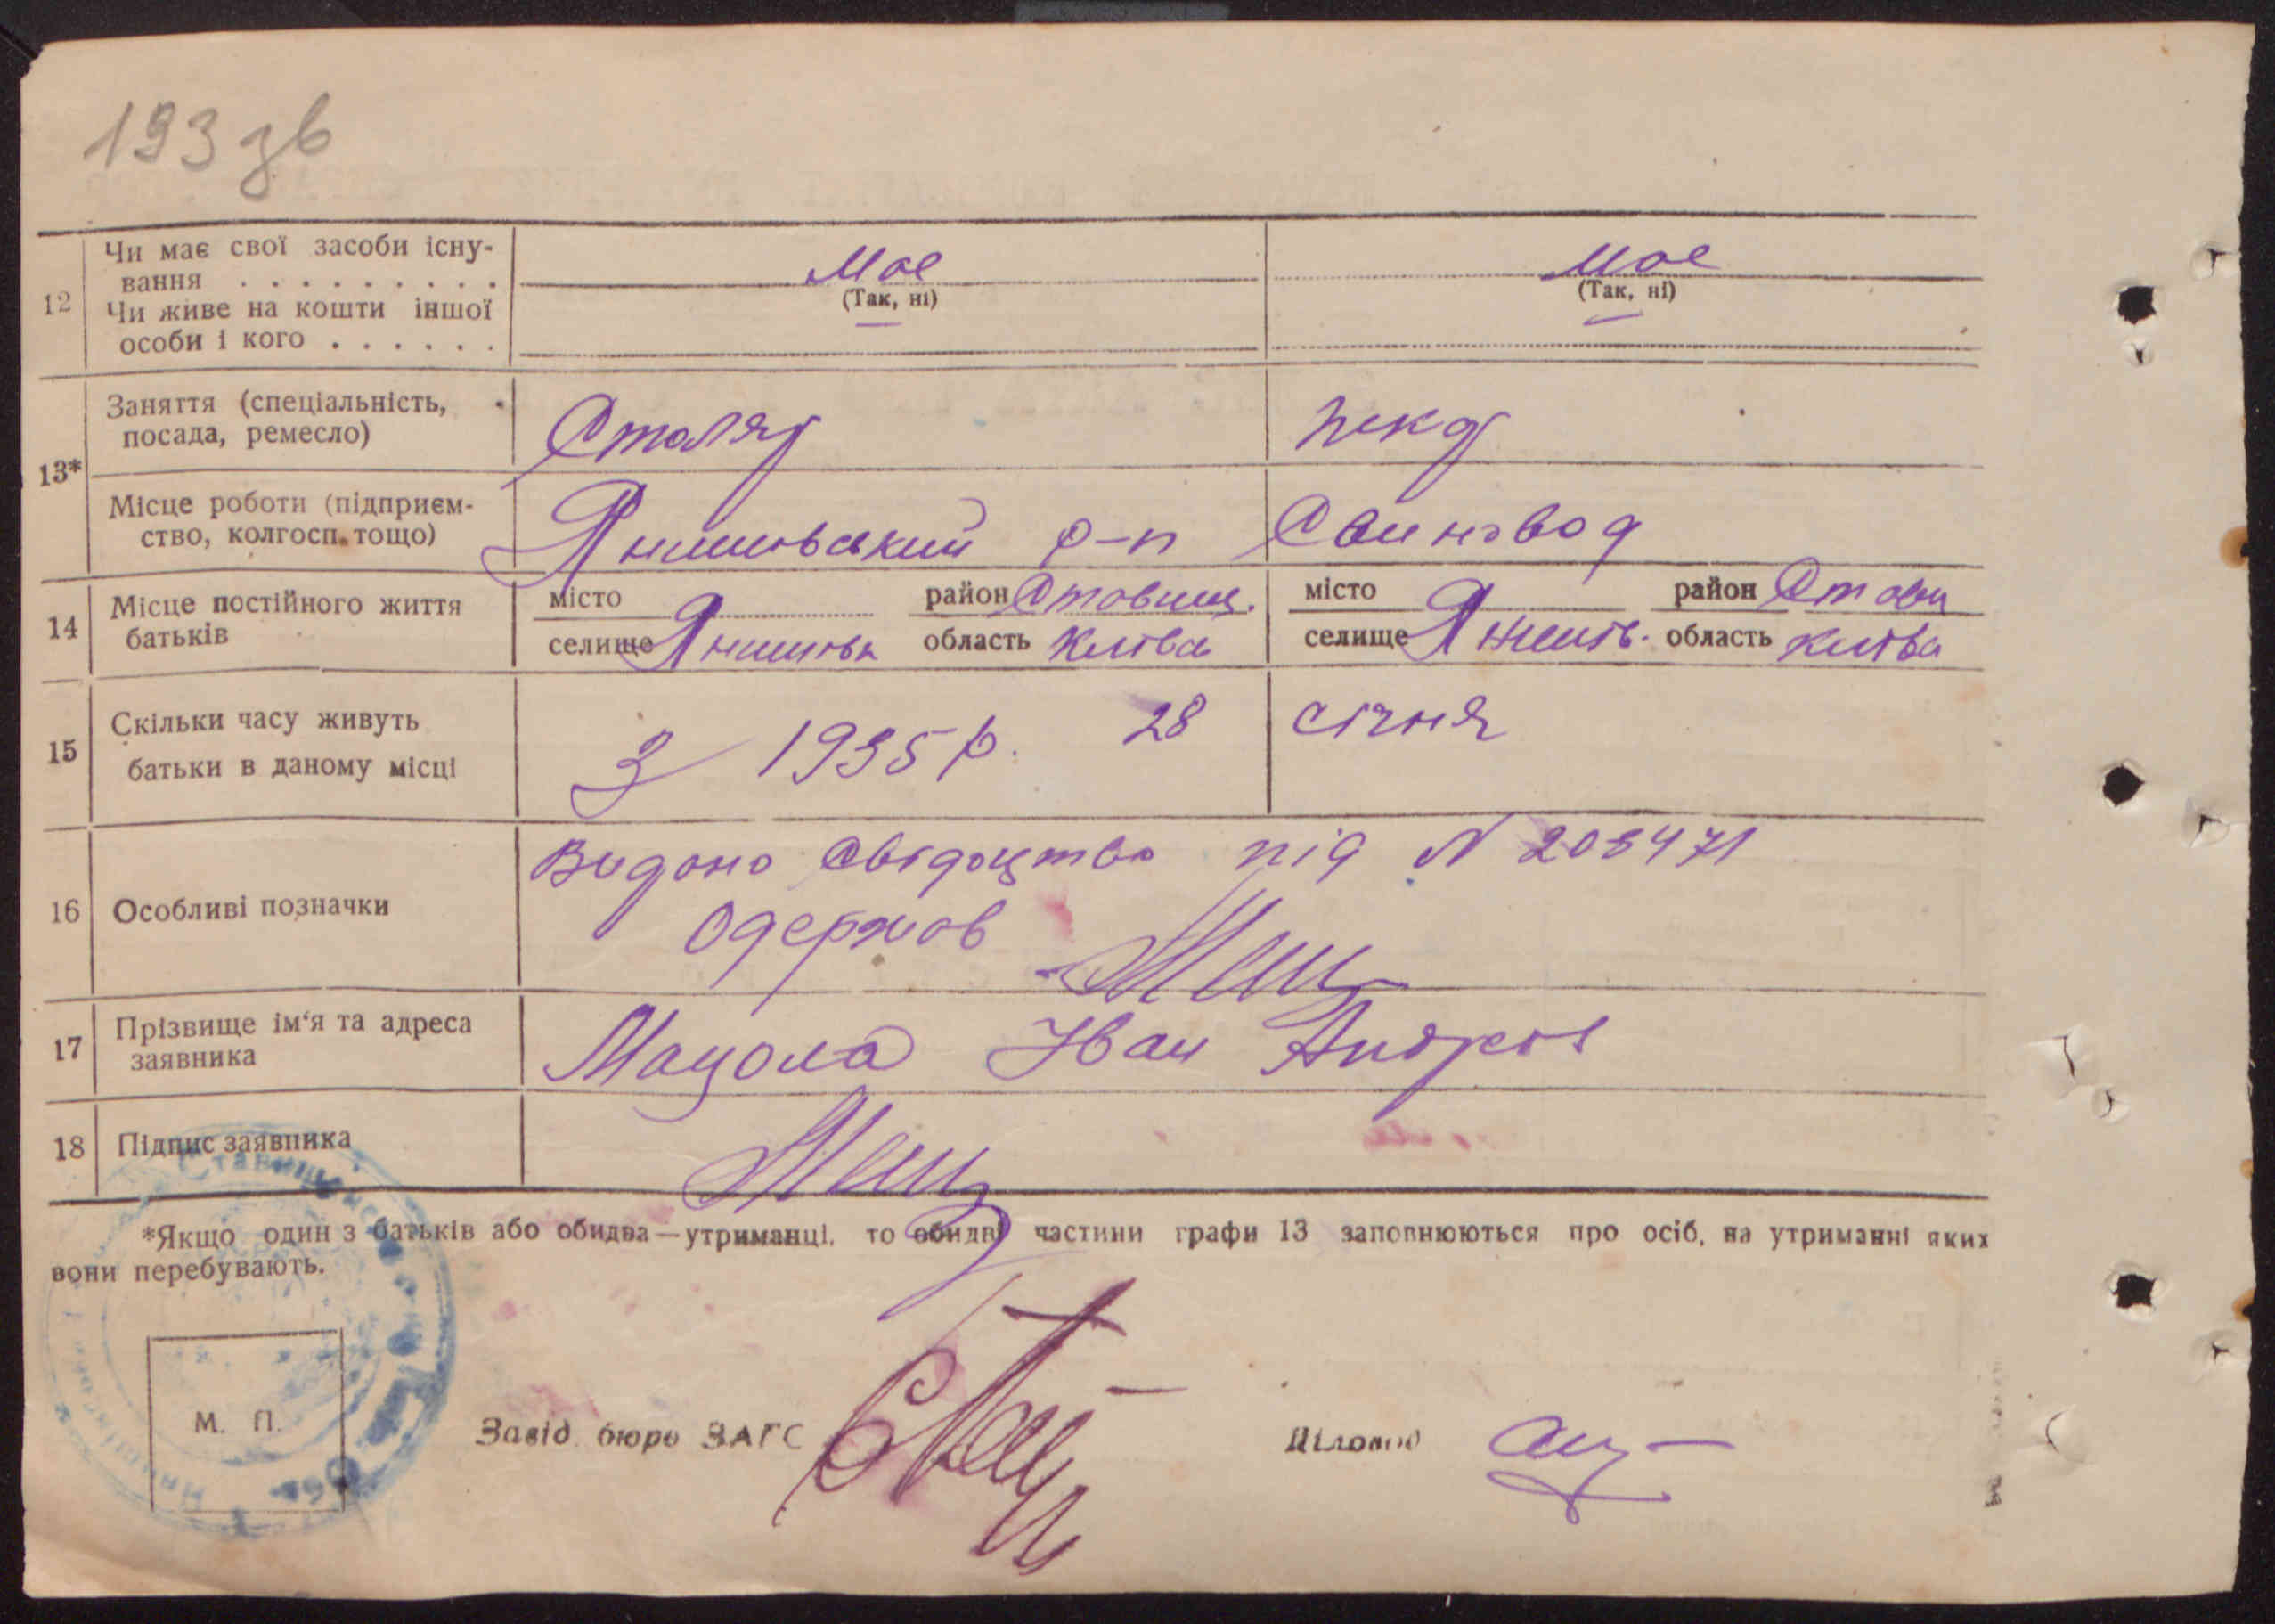 193 зв
12
Чи має свої засоби існу-
вання . . . . . . . . .
Чи живе на кошти іншої
особи і кого . . . . . .
Має
(Так, ні)
Має
(Так, ні)
13*
Заняття (спеціальність,
посада, ремесло)
Столяр
Місце роботи (підприєм-
ство, колгосп тощо)
р-п
Свиновод
14
Місце постійного життя
батьків
місто район Ставищ.
селище область Київ
місто район Стави
селище область Київ
15
Скільки часу живуть
батьки в даному місці
З 1935 р. 28 січня
16
Особливі позначки
Видано свідоцтво під N 203471
Одержав
17
Прізвище ім‘я та адреса
заявника
Мацола Іван
18
Підпис заявника
*Якщо один з батьків або обидва—утриманці, то обидві частини графи 13 заповнюються про осіб, на утриманні яких
вони перебувають.
М. П.
Завід. бюро ЗАГС
Діловод